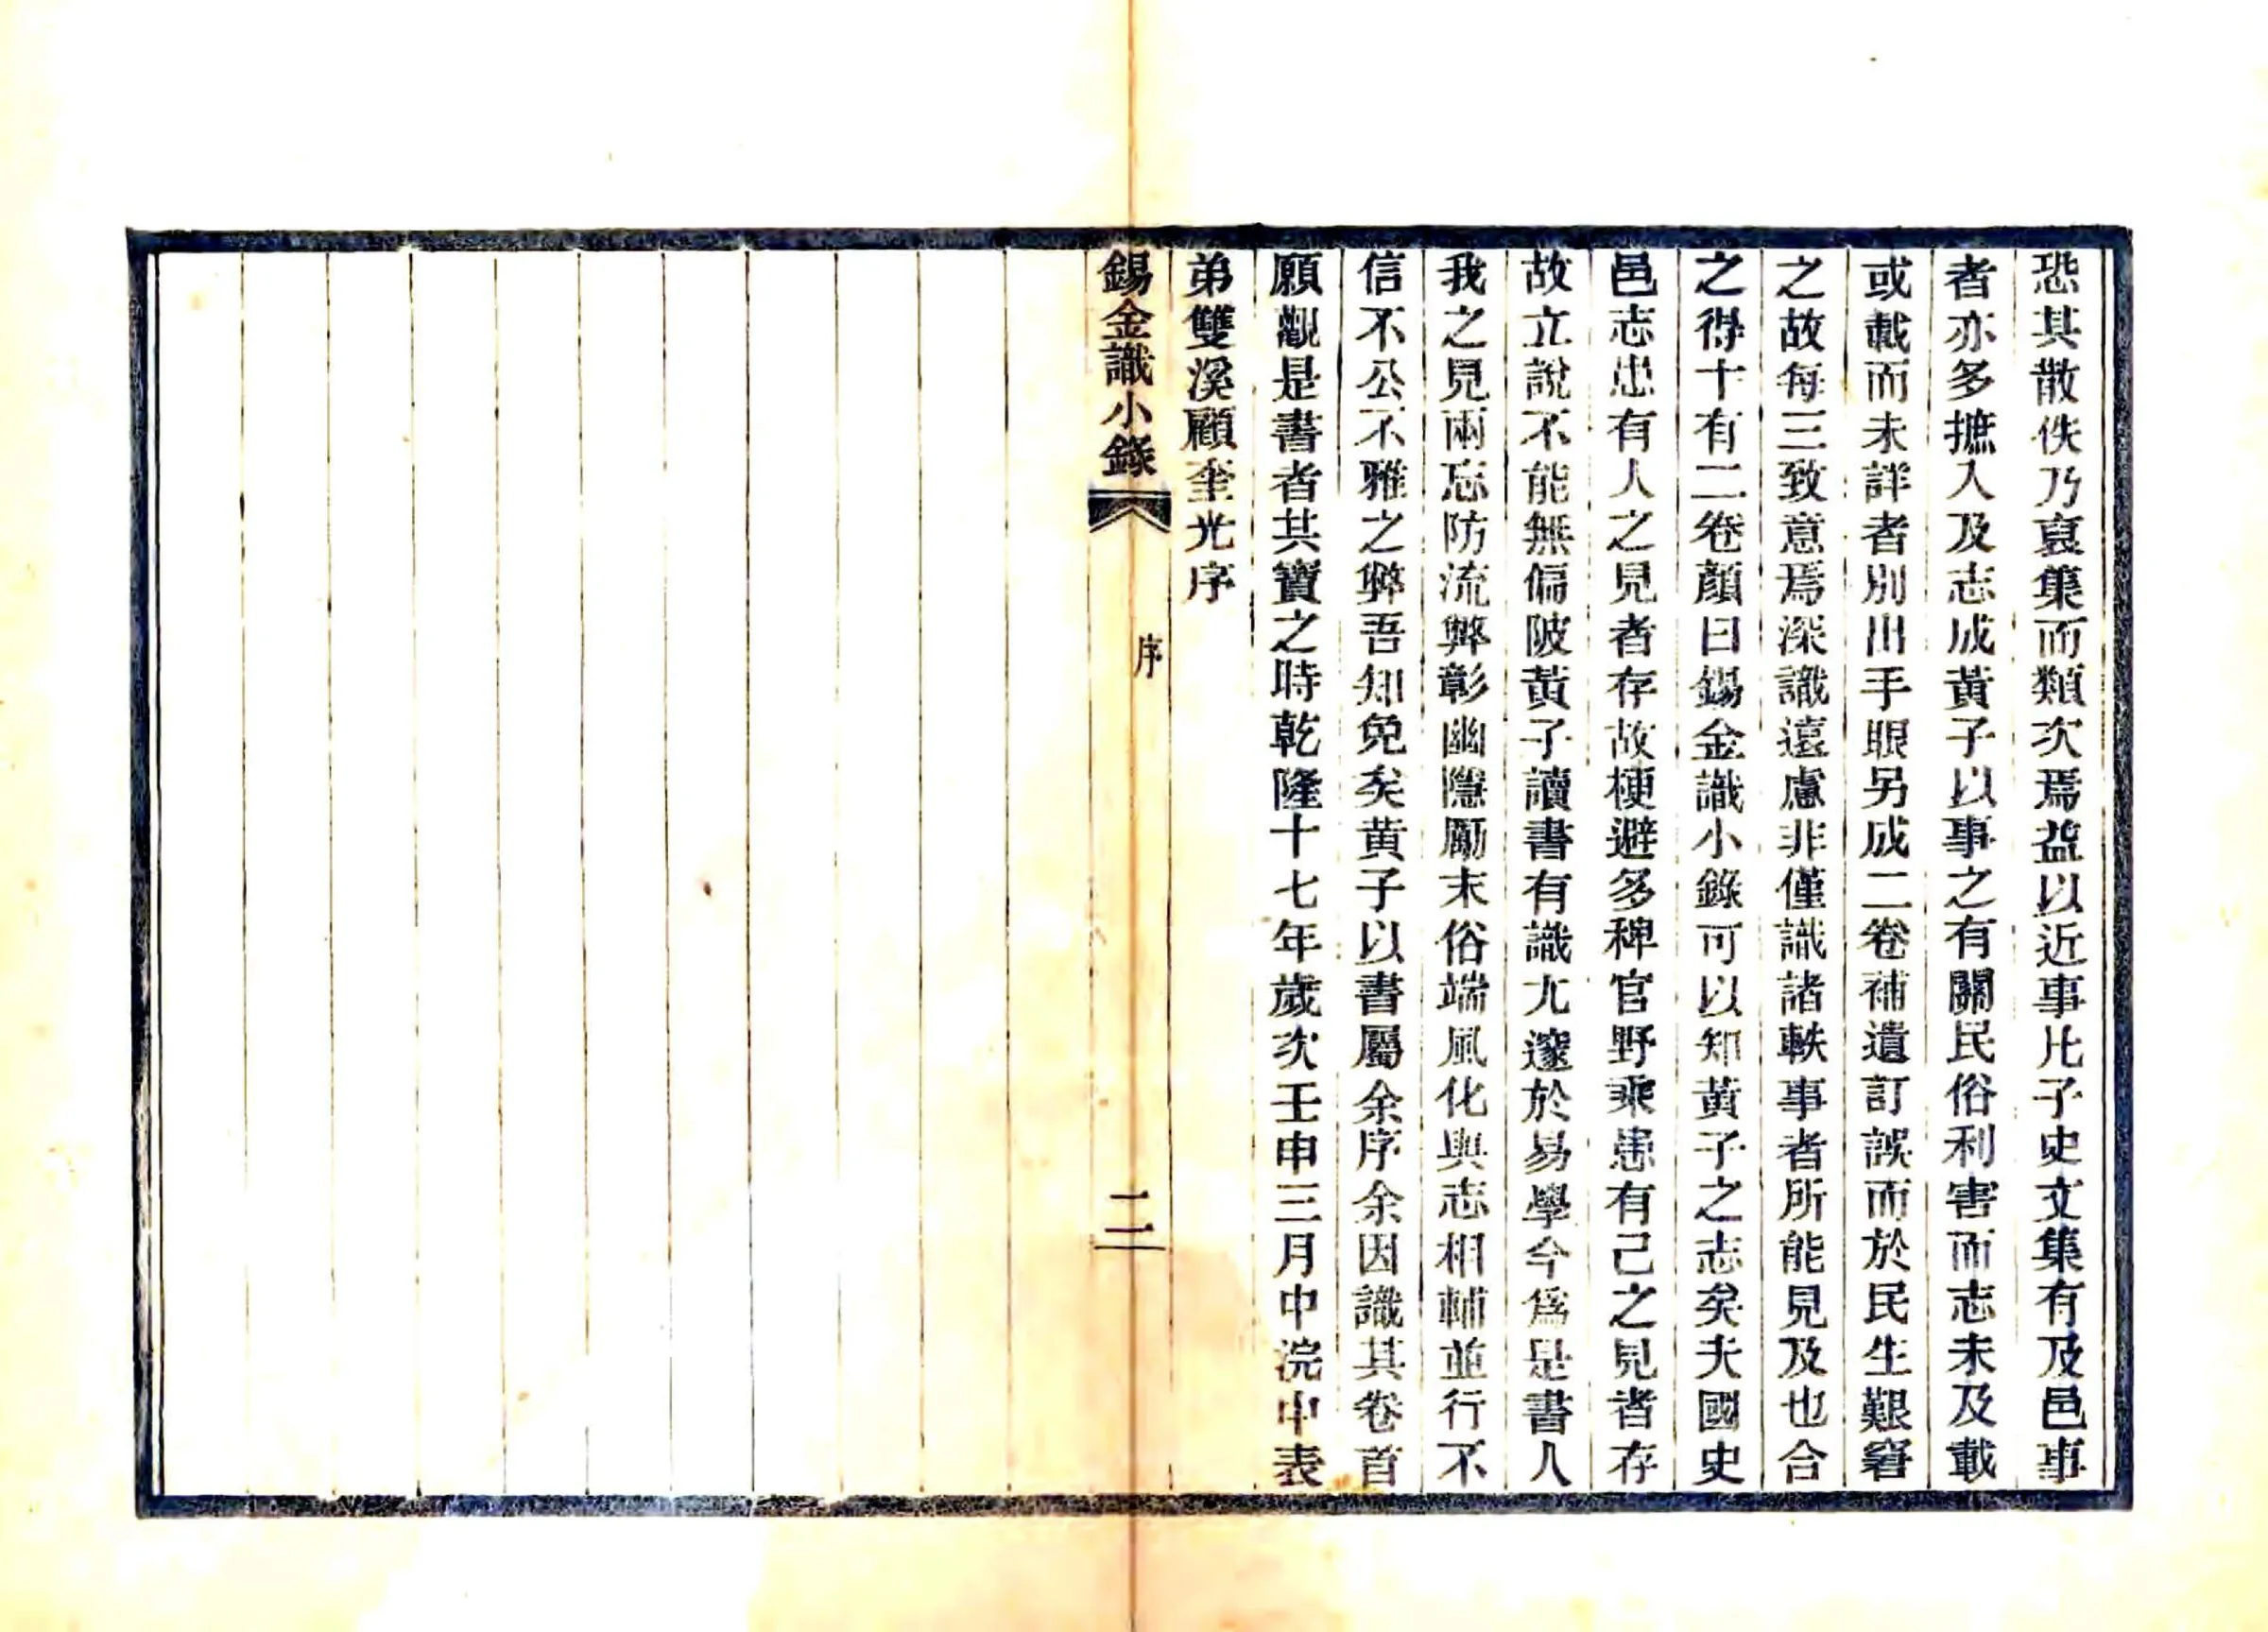 恐其散佚乃裒集而類次焉益以近事比子史文集有及邑事
者亦多摭入及志成黃子以事之有關民俗利害而志未及載
或載而未詳者別出手眼另成二卷補遺訂誤而於民生艱窘
之故每三致意焉深識遠慮非僅識諸軼事者所能見及也合
之得十有二卷顏曰錫金識小錄可以知黃子之志矣夫國史
邑志患有人之見者存故梗避多稗官野乘患有己之見者存
故立說不能無偏陂黃子讀書有識尤邃於易學今爲是書人
我之見兩忘防流弊彰幽隱勵末俗端風化與志相輔並行不
信不公不雅之弊吾知免矣黃子以書屬余序余因識其卷首
願觀是書者其寶之時乾隆十七年歲次壬申三月中浣中表
弟雙溪顧奎光序
錫金識小錄
序
二